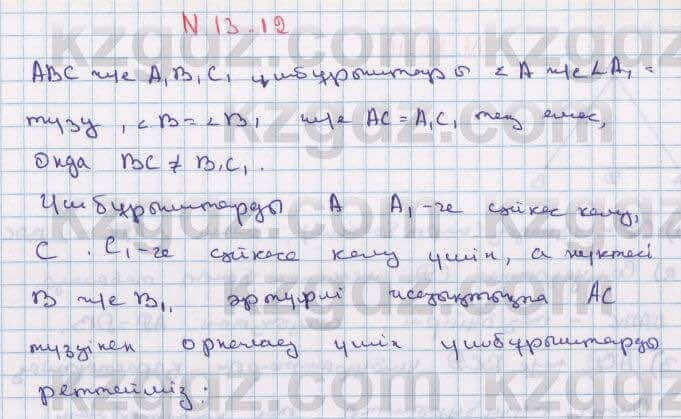 N 13.12
ABC және A₁B₁C₁ үшбұрыштары ∠A және ∠A₁ -
түзу, ∠B = ∠B₁ және AC = A₁C₁ тең емес,
Онда BC ≠ B₁C₁.
Үшбұрыштарды A A₁-ге сәйкес келу,
C . C₁-ге сәйкесе келу үшін, а нүктесі
B және B₁, әртүрлі жазықтықта AC
түзуінен орналасу үшін үшбұрыштарды
реттейміз:
kzgdz.com